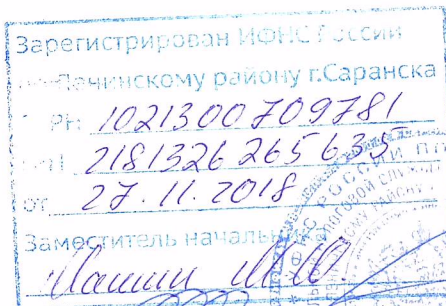 Зарегистрирован ИФНС России
Ленинскому району г.Саранска
РН 1021300709781
2181326265635
от 27.11.2018
Заместитель начальника